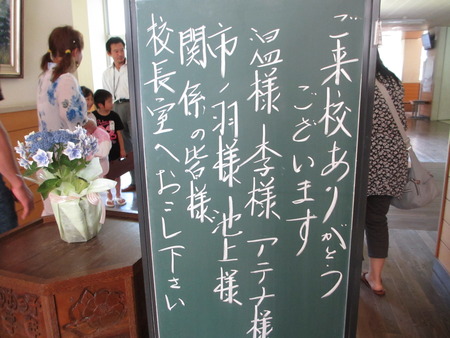 ご来校ありがとう
ございます
温様 李様 アテナ様
市ノ羽様 池上様
関係の皆様
校長室へおこし下さい